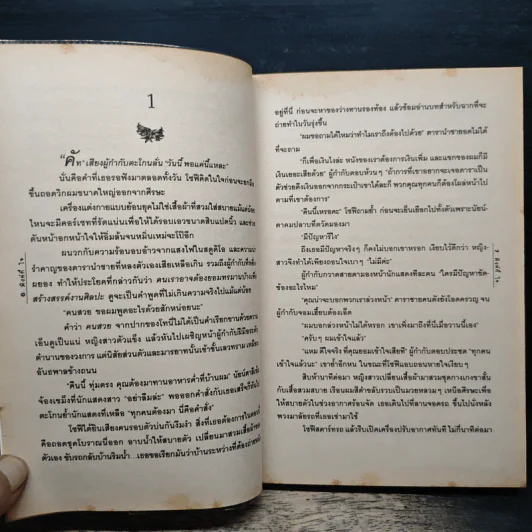 1
"คัท" เสียงผู้กำกับตะโกนลั่น "วันนี้ พอแค่นี้แหละ"
นั่นคือคำที่เธอรอฟังมาตลอดทั้งวัน โซฟีคิดในใจก่อนจะ
ขึ้นถอดวิกผมขนาดใหญ่ออกจากศีรษะ
เครื่องแต่งกายแบบย้อนยุคไม่ใช่เสื้อผ้าที่สวมใส่สบายแม้แต่น้อย
ไหนจะมีคอร์เซทที่รัดแน่นเพื่อให้ได้รอบเอวขนาดสิบแปดนิ้ว และช่วย
ดันหน้าอกหน้าใจให้อิ่มล้นจนหมิ่นเหม่จะโป๊อีก
ผนวกกับความร้อนอบอ้าวจากแสงไฟในสตูดิโอ และความ
รำคาญของดารานำชายที่หลงตัวเองเสียเหลือเกิน รวมถึงผู้กำกับที่
ผยอง ทำให้ประโยคที่กล่าวกันว่า คนเราอาจต้องยอมทรมานบ้างเพื่อ
สร้างสรรค์งานศิลปะ ดูจะเป็นคำพูดที่ไม่เกินความจริงไปแม้แต่น้อย
"คนสวย ขอผมพูดอะไรด้วยสักหน่อยนะ"
คำว่า คนสวย จากปากของโทนีไม่ได้เป็นคำเรียกขานด้วยความ
เอ็นดูเป็นแน่ หญิงสาวตัวแข็ง แล้วหันไปเผชิญหน้าผู้กำกับฝีมือ
ตำนานของวงการ แต่นิสัยส่วนตัวและมารยาทนั้นเข้าขั้นเลวทราม เหมือน
อันธพาลข้างถนน
"คืนนี้ ทุ่มตรง คุณต้องมาทานอาหารค่ำที่บ้านผม"
จ้องเขม็งที่นักแสดงสาว "อย่าลืมล่ะ" พอออกคำสั่งกับเธอเสร็จ
ตะโกนย้ำนักแสดงที่เหลือ "ทุกคนต้องมา นี่คือคำสั่ง"
โซฟีได้ยินเสียงคนรอบตัวบ่นกันงึมงำ สิ่งที่เธอต้องการในตอนนี้
คือถอดชุดโบราณนี้ออก อาบน้ำให้สบายตัว เปลี่ยนมาสวมเสื้อผ้าของ
ตัวเอง ขับรถกลับบ้านริมน้ำ...เธอขอเรียกมันว่าบ้านระหว่างที่ต้องถ่าย
๑ พิงค์กี้ ใจ
อยู่ที่นี่ ก่อนจะหาของว่างทานรองท้อง แล้วซ้อมอ่านบทสำหรับฉากที่จะ
ถ่ายทำในวันรุ่งขึ้น
"ผมขอถามได้ไหมว่าทำไมเราถึงต้องไปด้วย" ดารานำชายอดไม่ได้
ที่จะถาม
"ก็เพื่อเงินไงล่ะ หนังของเราต้องการเงินเพิ่ม และแขกของผมก็มี
เงินเยอะเสียด้วย" ผู้กำกับตอบห้วนๆ "ถ้าการที่เขาอยากจะเจอดาราเป็น
ตัวช่วยดึงเงินออกจากกระเป๋าเขาได้ละก็ พวกคุณทุกคนก็ต้องโผล่หน้าไป
ตามที่เขาต้องการ"
"คืนนี้เหรอคะ" โซฟีถามย้ำ ก่อนจะเย็นเยือกไปทั้งตัวเพราะนัยน์-
ตาคมปลาบที่ตวัดมองมา
"มีปัญหารึไง"
ถึงเธอมีปัญหาจริงๆ ก็คงไม่บอกเขาหรอก เงียบไว้ดีกว่า หญิง-
สาวจึงทำได้เพียงถอนใจเบาๆ "ไม่มีค่ะ"
ผู้กำกับกวาดสายตามองหน้านักแสดงทีละคน "ใครมีปัญหาขัด-
ข้องอะไรไหม"
"คุณน่าจะบอกพวกเราล่วงหน้า" ดาราชายคนดังยังโอดครวญ จน
ผู้กำกับจอมเฮี้ยบต้องเอ็ด
"ผมบอกล่วงหน้าไม่ได้หรอก เขาเพิ่งมาถึงที่นี่เมื่อวานนี้เอง"
"ครับๆ ผมเข้าใจแล้ว"
"แหม ดีใจจริง ที่คุณยอมเข้าใจเสียที" ผู้กำกับตอบประชด "ทุกคน
เข้าใจแล้วนะ" เขาย้ำอีกหน ในขณะที่โซฟีแอบถอนหายใจเงียบๆ
สิบห้านาทีต่อมา หญิงสาวเปลี่ยนเสื้อผ้ามาสวมชุดกางเกงขาสั้น
กับเสื้อสวมสบาย เรือนผมสีดำขลับรวบเป็นหางม้ายาวสลวยเหนือศีรษะเพื่อ
ให้สบายตัวในช่วงอากาศร้อนจัด เธอเดินไปที่ลานจอดรถ ขึ้นไปนั่งหลัง
พวงมาลัยรถที่เธอเช่ามาใช้
โซฟีสตาร์ทรถ แล้วรีบเปิดเครื่องปรับอากาศทันที ไม่กี่นาทีต่อมา